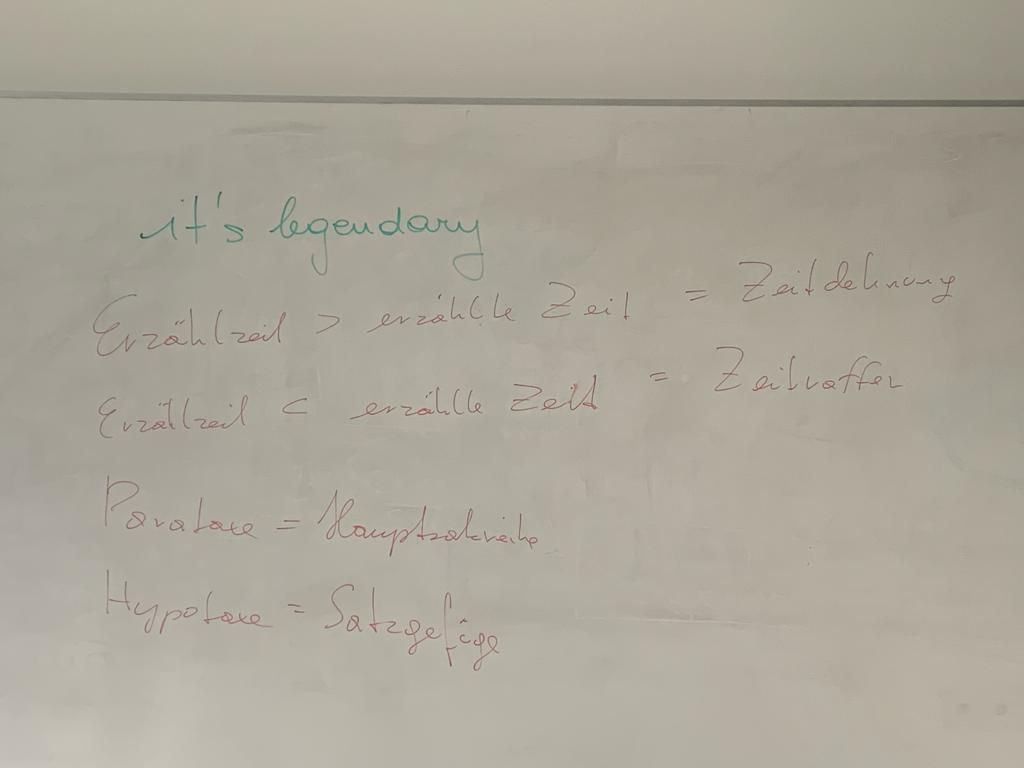 it's legendary
Erzählzeit > erzählte Zeit = Zeitdehnung
Erzählzeit < erzählte Zeit = Zeitraffer
Parataxe = Hauptsatzreihe
Hypotaxe = Satzgefüge